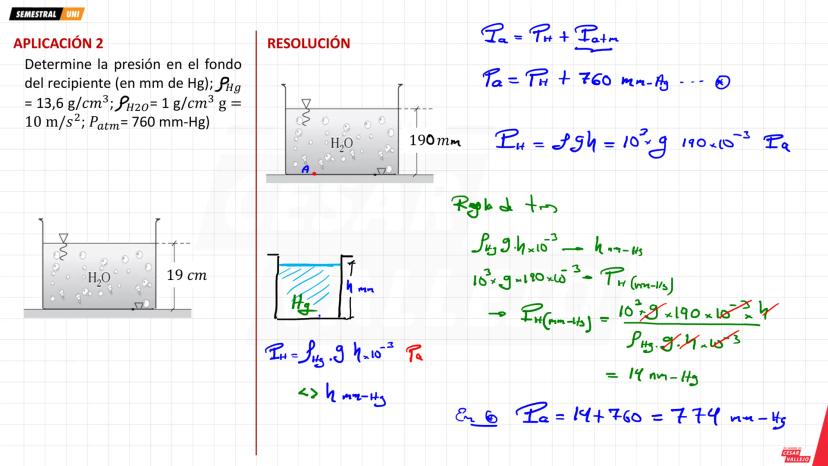 SEMESTRAL UNI
APLICACIÓN 2
Determine la presión en el fondo
del recipiente (en mm de Hg); ρHg
= 13,6 g/cm³; ρH2O= 1 g/cm³ g =
10 m/s²; Patm= 760 mm-Hg)
H₂O
19 cm
RESOLUCIÓN
H₂O
190mm
A
Hg
h mm
PH = ρHg . g h×10⁻³ Pa
<> h mm-Hg
Pa = PH + Patm
Pa = PH + 760 mm-Hg ... *
PH = ρgh = 10³×g 190×10⁻³ Pa
Regla de tres
ρHg g.h×10⁻³ → h mm-Hg
10³×g×190×10⁻³ - PH (mm-Hg)
→ PH(mm-Hg) = 10³×g×190×10⁻³×h
ρHg.g.h×10⁻³
= 14 mm-Hg
En * Pa = 14+760 = 774 mm-Hg
CESAR
VALLEJO